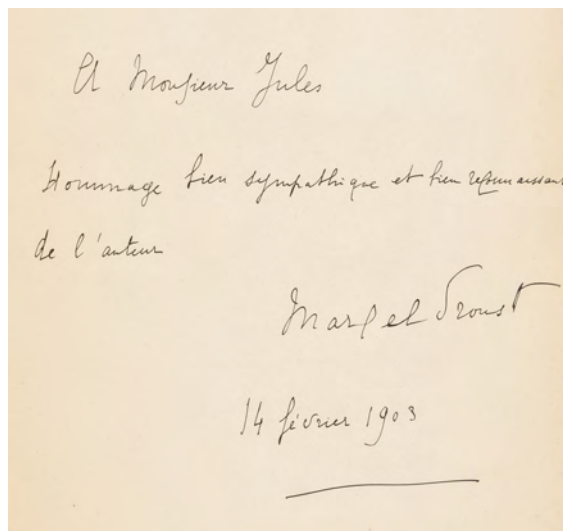 A Monsieur Jules
Hommage bien sympathique et bien reconnaissant
de l'auteur
Marcel Proust
14 février 1903